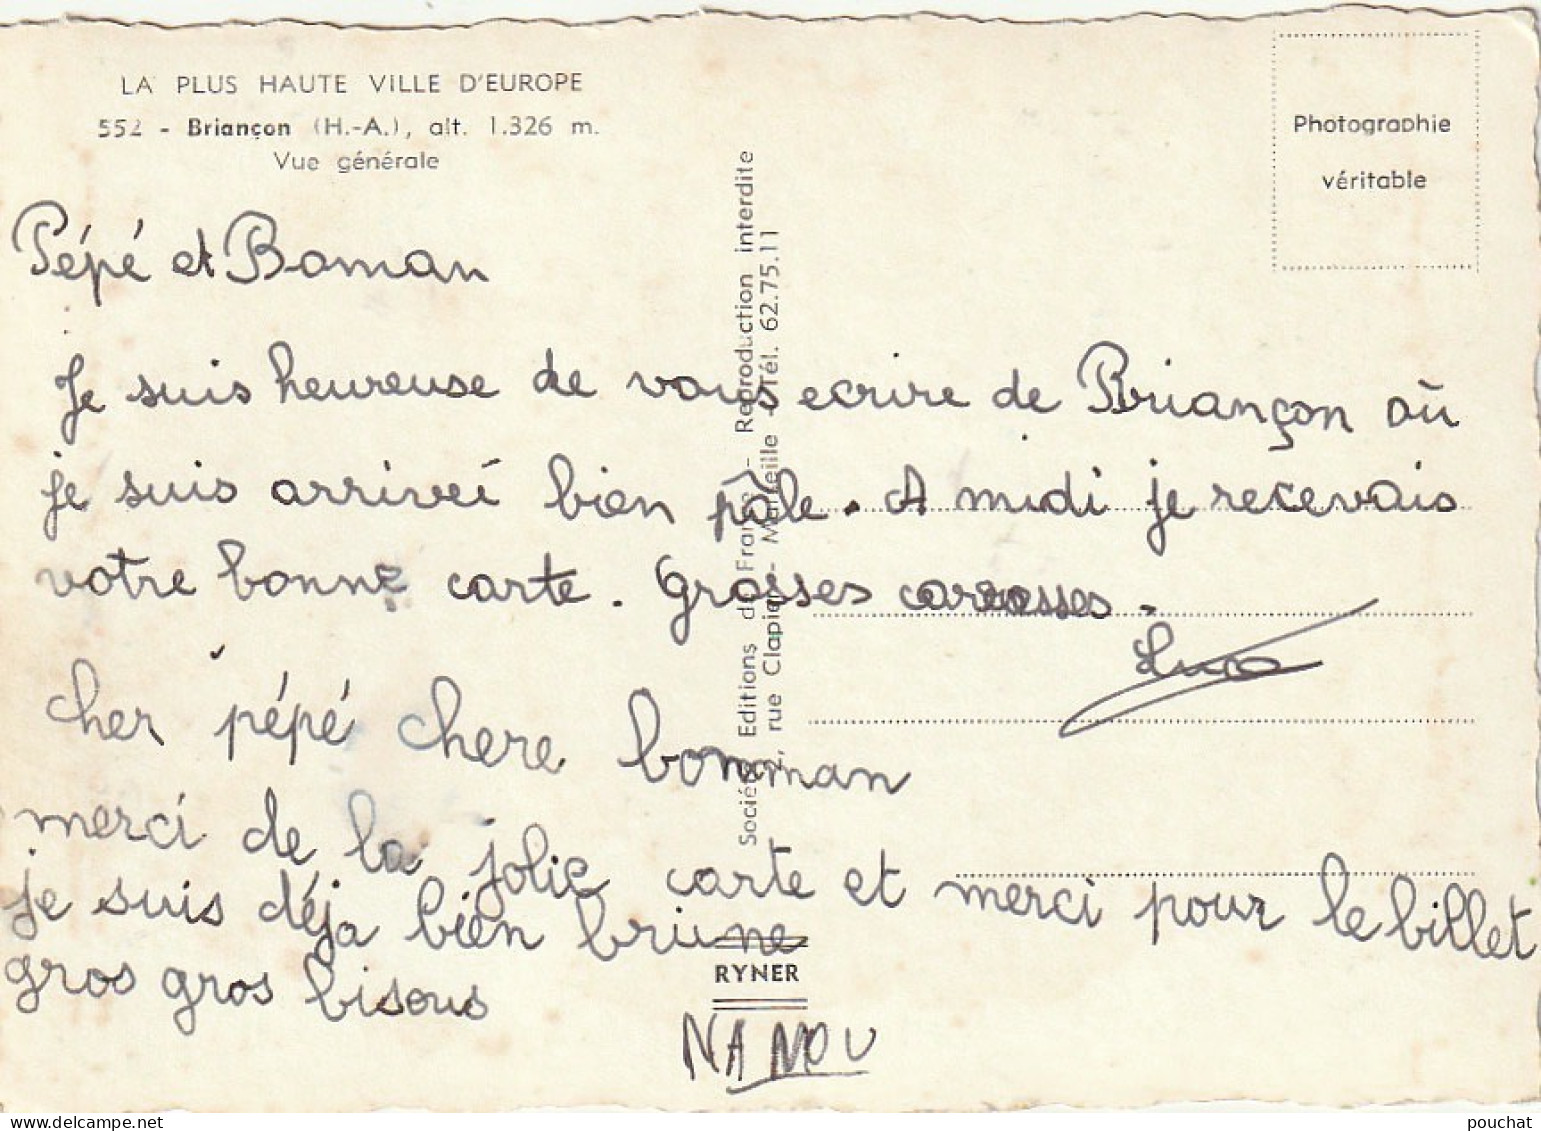 LA PLUS HAUTE VILLE D'EUROPE
552 - Briançon (H.-A.), alt. 1.326 m.
Vue générale
Photographie
véritable
Pépé et Boman
Je suis heureuse de vous ecrire de Briançon où
je suis arriveé bien pâle. A midi je recevais
votre bonne carte. Grosses caresses.
cher pépé chere bonman
merci de la jolie carte et merci pour le billet
je suis déja bien brune
gros gros bisous
NANOU
Société Editions de France - Reproduction interdite
rue Clapier - Marseille - Tél. 62.75.11
RYNER
pouchat